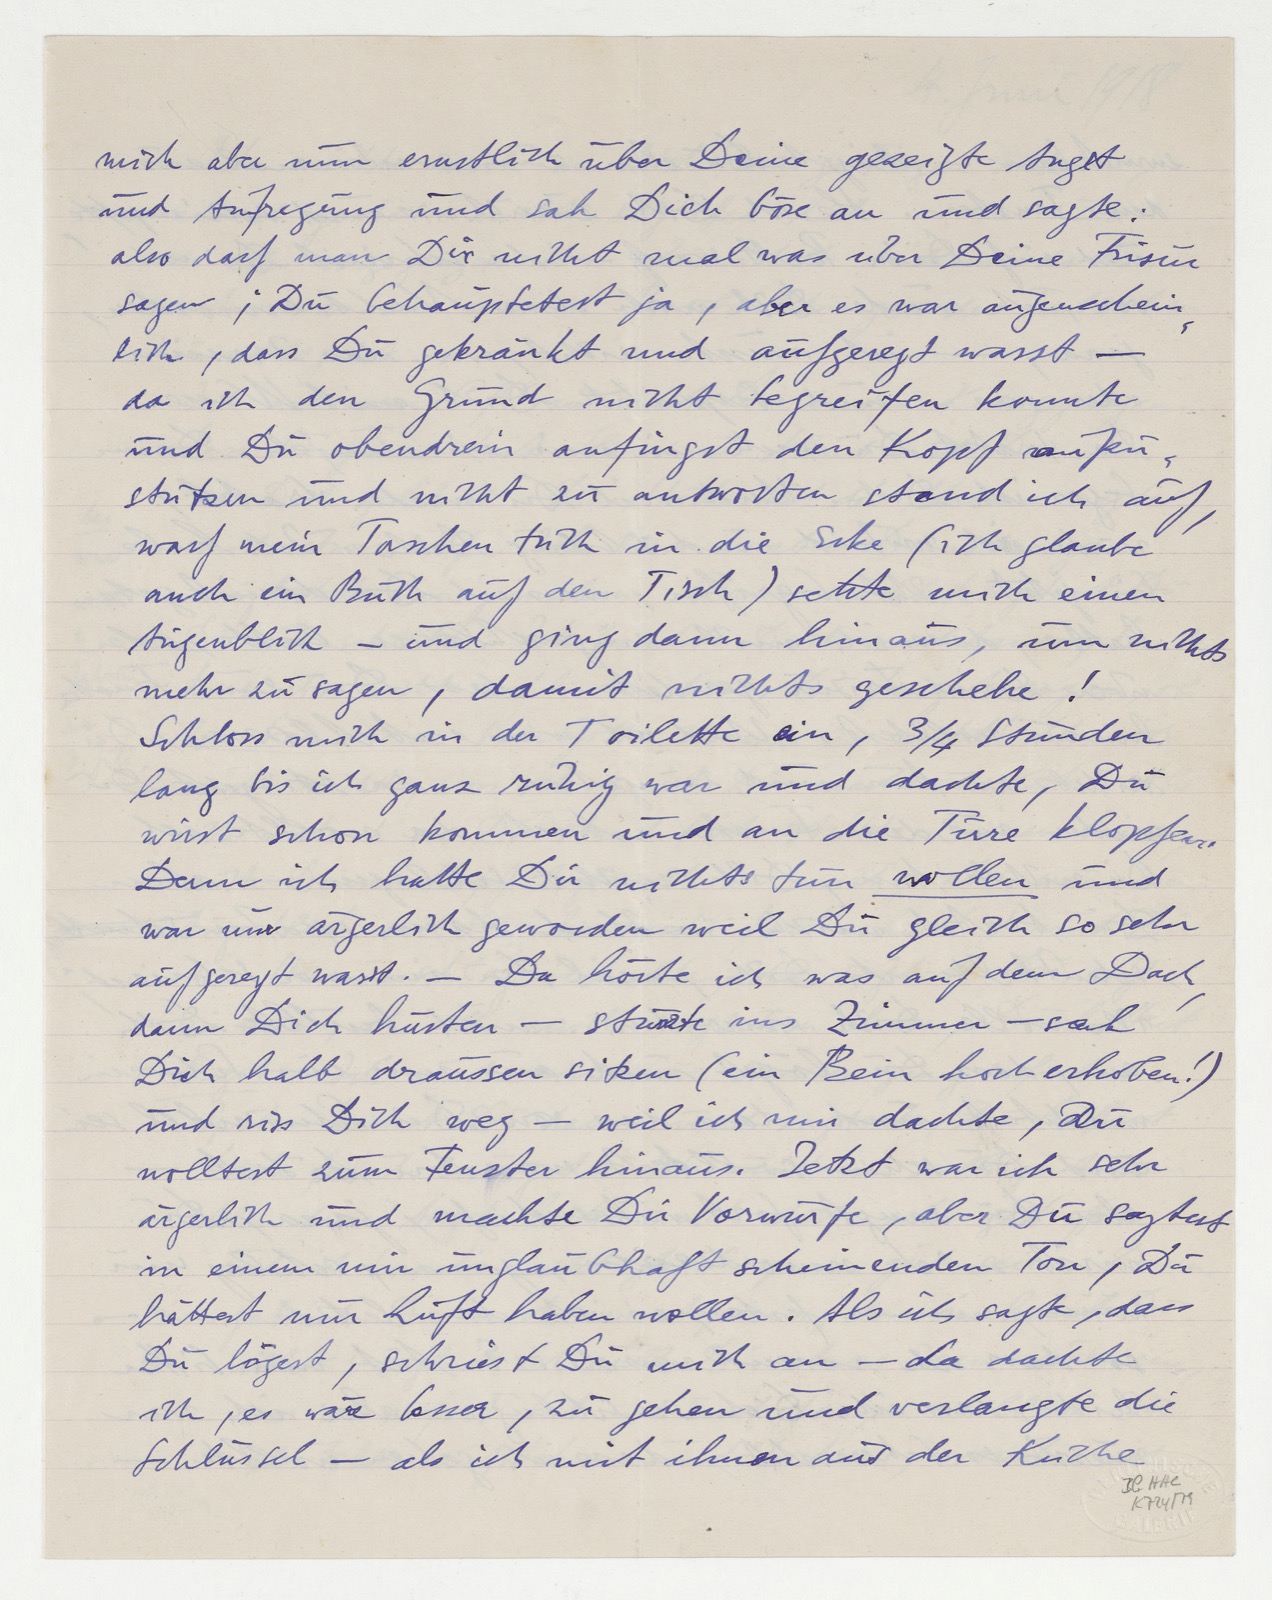 mich aber nun ernstlich über Deine gezeigte Angst
und Aufregung und sah Dich böse an und sagte:
also darf man Dir nicht mal was über Deine Frisur
sagen; Du behauptetest ja, aber es war augenschein-
lich, dass Du gekränkt und aufgeregt warst —
da ich den Grund nicht begreifen konnte
und Du obendrein anfingst den Kopf aufzu-
stützen und nicht zu antworten stand ich auf,
warf mein Taschentuch in die Ecke (ich glaube
auch ein Buch auf den Tisch) setzte mich einen
Augenblick – und ging dann hinaus, um nichts
mehr zu sagen, damit nichts geschehe!
Schloss mich in der Toilette ein, 3/4 Stunden
lang bis ich ganz ruhig war und dachte, Du
wirst schon kommen und an die Türe klopfen.
Denn ich hatte Dir nichts tun wollen und
war nur ärgerlich geworden weil Du gleich so sehr
aufgeregt warst. – Da hörte ich was auf dem Dach,
dann Dich husten – stürzte ins Zimmer – sah
Dich halb draussen sitzen (ein Bein hoch erhoben!)
und riss Dich weg – weil ich mir dachte, Du
wolltest zum Fenster hinaus. Jetzt war ich sehr
ärgerlich und machte Dir Vorwürfe, aber Du sagtest
in einem mir unglaubhaft scheinenden Ton, Du
hättest nur Luft haben wollen. Als ich sagte, dass
Du lögest, schriest Du mich an – da dachte
ich, es wäre besser, zu gehen und verlangte die
Schlüssel – als ich mit ihnen aus der Küche
BG HHC
K724/79